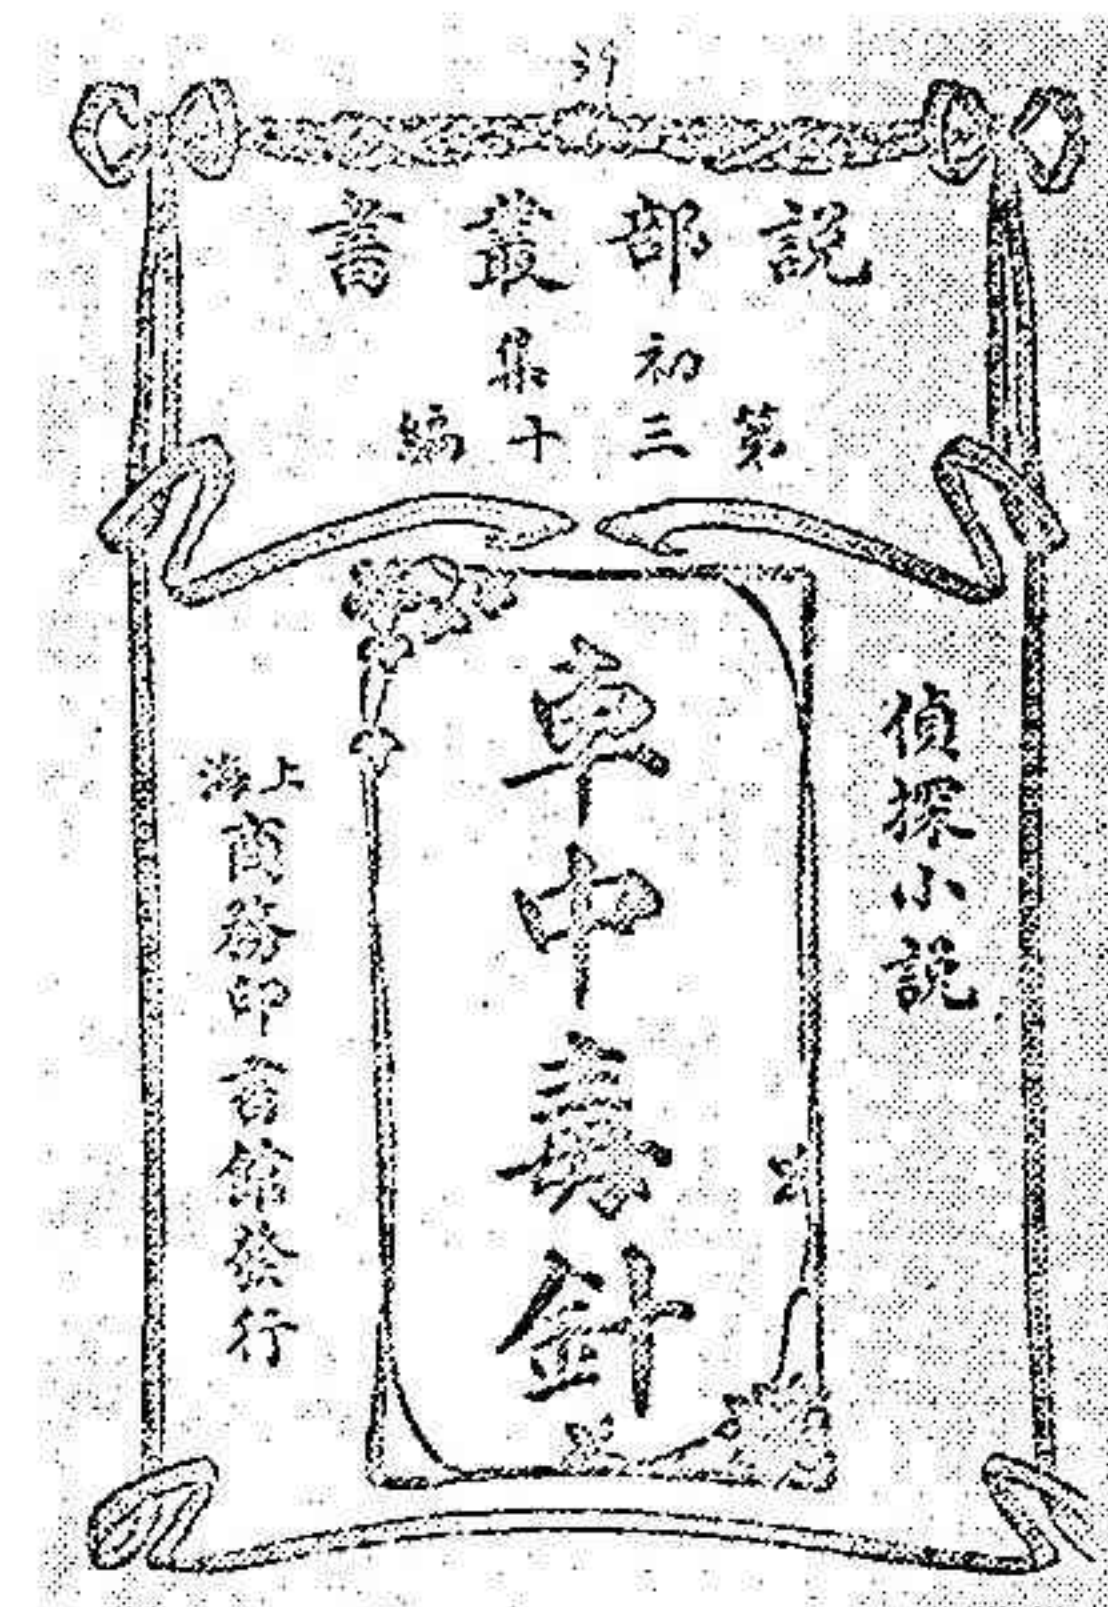 説部叢書
初集
第三十編
偵探小説
車中毒針
上海
商務印書館發行